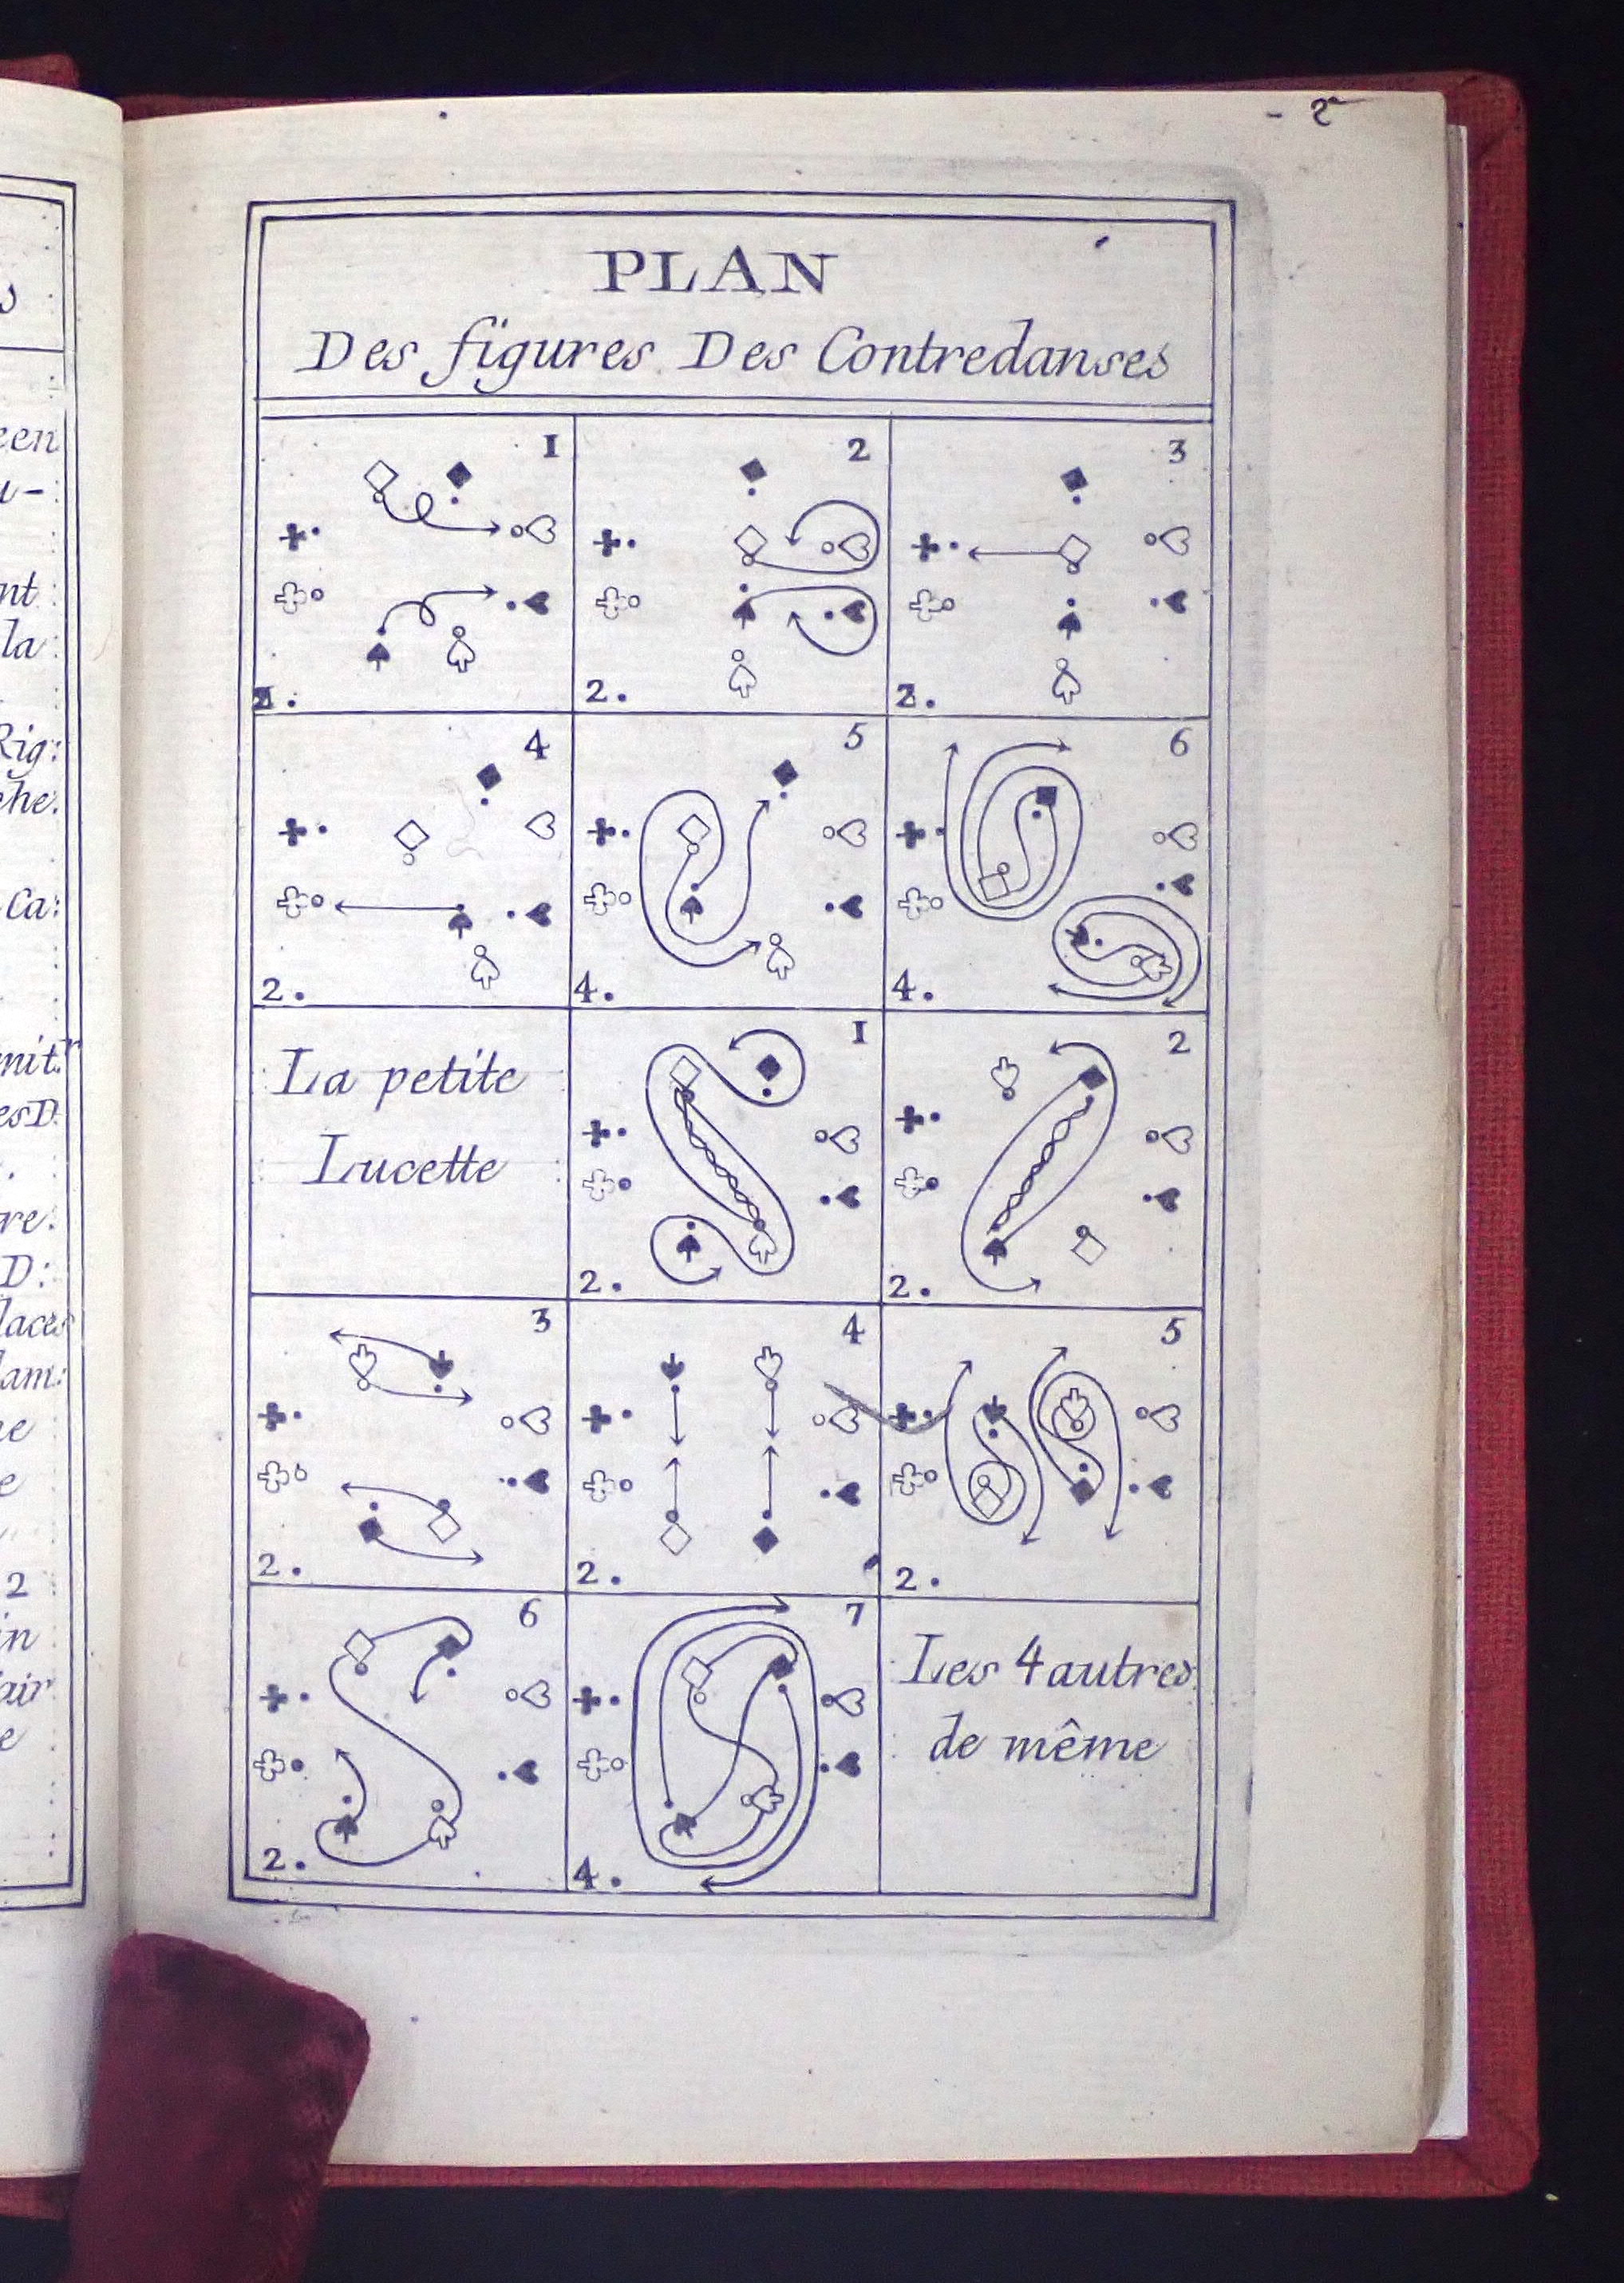 - 2
PLAN
Des figures Des Contredanses
1
2
3
2.
2.
4
5
6
2.
4.
4.
La petite
Lucette
1
2
2.
2.
3
4
5
2.
2.
2.
6
7
2.
4.
Les 4 autres
de même
een
u-
nt:
la:
Rig:
che.
Ca:
esD.
re:
D:
laces
lam:
ne
e
2
in
air
e